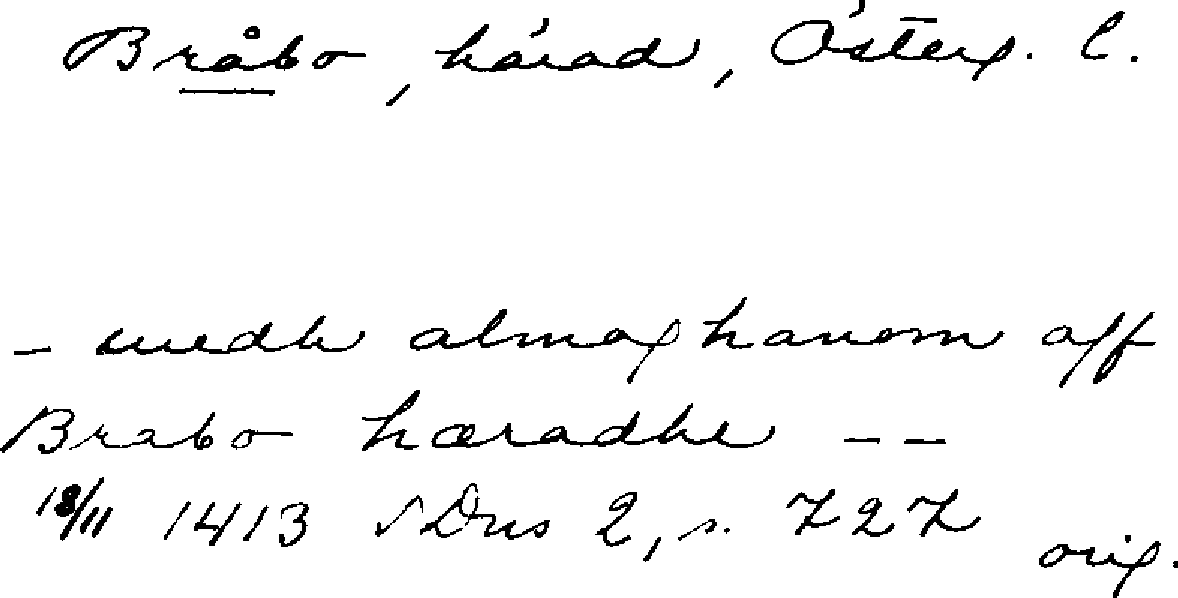 Bråbo, härad, Österg. l.
- medh almoghanom aff
Brabo hæradhe --
18/11 1413 SDns 2, s. 727
orig.